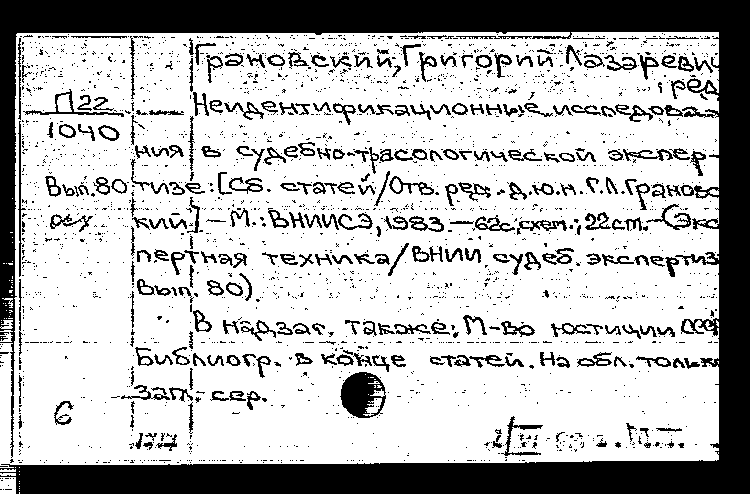 Грановский, Григорий Лазаревич
, ред
П22
Неидентификационные исследова
1040
ния в судебно-трасологической экспер-
Вып. 80 тизе: [Сб. статей/Отв. ред. д.ю.н. Г.Л. Грановс
кий] – М.: ВНИИСЭ, 1983. – 62с, схем.; 22 см. – (Экс
пертная техника/ВНИИ судеб. экспертиз
Вып. 80).
В надзаг. также: М-во юстиции СССР
Библиогр. в конце статей. На обл. только
загл. сер.
6